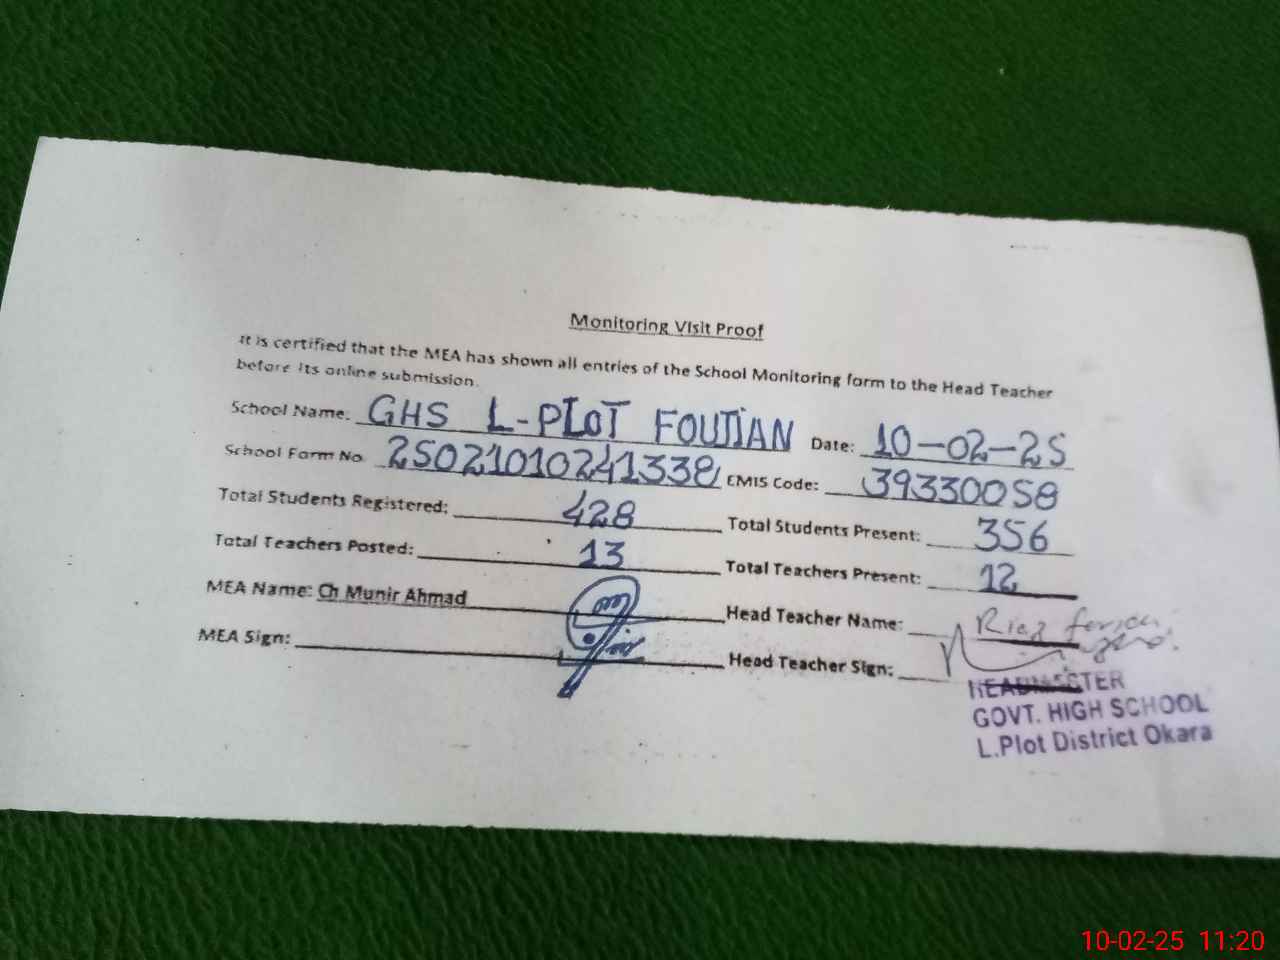 Monitoring Visit Proof
It is certified that the MEA has shown all entries of the School Monitoring form to the Head Teacher
before its online submission.
School Name: GHS L-PLOT FOUJIAN Date: 10-02-25
School Form No 25021010241338 EMIS Code: 39330058
Total Students Registered: 428 Total Students Present: 356
Total Teachers Posted: 13 Total Teachers Present: 12
MEA Name: Ch Munir Ahmad Head Teacher Name: Riaz
MEA Sign: Head Teacher Sign:
HEADMASTER
GOVT. HIGH SCHOOL
L.Plot District Okara
10-02-25 11:20